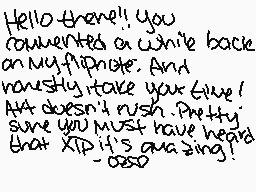 Hello there!! You
commented a while back
on my flipnote. And
honestly, take your time!
Art doesn't rush. Pretty
sure you must have heard
that XD it's amazing!